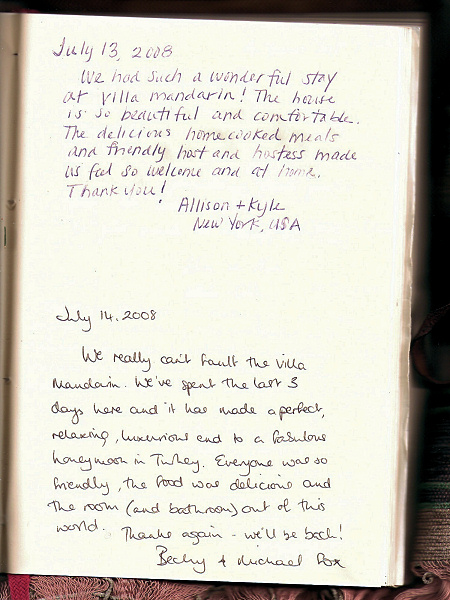 July 13, 2008
We had such a wonderful stay
at Villa mandarin! The house
is so beautiful and comfortable.
The delicious homecooked meals
and friendly host and hostess made
us feel so welcome and at home.
Thank you!
Allison + Kyle
New York, USA
July 14. 2008
We really can't fault the Villa
Mandarin. We've spent the last 3
days here and it has made a perfect,
relaxing, luxurious end to a fabulous
honeymoon in Turkey. Everyone was so
friendly, the food was delicious and
the room (and bathroom) out of this
world. Thanks again - we'll be back!
Becky + Michael Fox